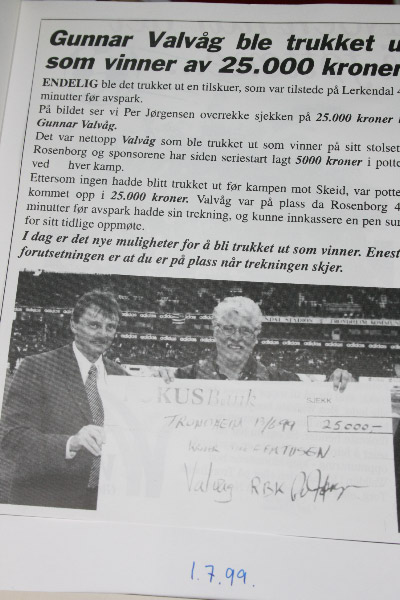 Gunnar Valvåg ble trukket u
som vinner av 25.000 kroner
ENDELIG ble det trukket ut en tilskuer, som var tilstede på Lerkendal 4
minutter før avspark.
På bildet ser vi Per Jørgensen overrekke sjekken på 25.000 kroner
Gunnar Valvåg.
Det var nettopp Valvåg som ble trukket ut som vinner på sitt stolset
Rosenborg og sponsorene har siden seriestart lagt 5000 kroner i potte
ved hver kamp.
Ettersom ingen hadde blitt trukket ut før kampen mot Skeid, var potte
kommet opp i 25.000 kroner. Valvåg var på plass da Rosenborg 4
minutter før avspark hadde sin trekning, og kunne innkassere en pen sum
for sitt tidlige oppmøte.
I dag er det nye muligheter for å bli trukket ut som vinner. Enest
forutsetningen er at du er på plass når trekningen skjer.
adidas adidas adidas
KUSBank
SJEKK
TRONDHEIM
25.000,-
Valvåg RBK
1.7.99.